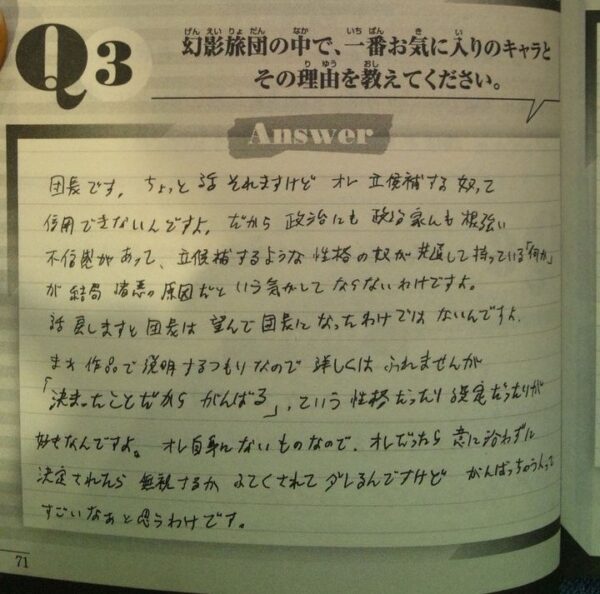 Q3
幻影旅団の中で、一番お気に入りのキャラと
その理由を教えてください。
Answer
団長です。ちょっと話それますけど オレ 立候補する奴って
信用できないんですよ。だから 政治にも 政治家にも 根強い
不信感があって、立候補するような 性格の奴が 共通して持っている「何か」
が 結局 諸悪の原因だと いう気がして ならないわけですよ。
話戻しますと 団長は 望んで団長に なったわけでは ないんですよ。
まぁ 作品で説明するつもりなので 詳しくは ふれませんが
「決まったことだから がんばる」、ていう 性格だったり 設定だったりが
好きなんですよ。オレ自身にないものなので、オレだったら 意に沿わずに
決定されたら 無視するか ふてくされて ダレるんですけど がんばっちゃう人って
すごいなぁと思うわけです。
71